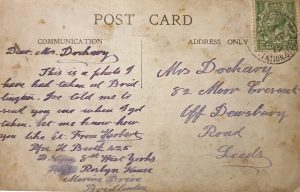 POST CARD
COMMUNICATION
ADDRESS ONLY
Dear Mrs. Docharty
This is a photo I
have had taken at Brid
lington. Ive told me to
send you one when I got
taken. Let me know how
you like it. From Herbert
Pte H. Booth 425
D. Coy 8th West Yorks
Roslyn House
Marine Drive
Bridlington
Mrs Docharty
82 Moor Crescent
Off Dewsbury
Road
Leeds